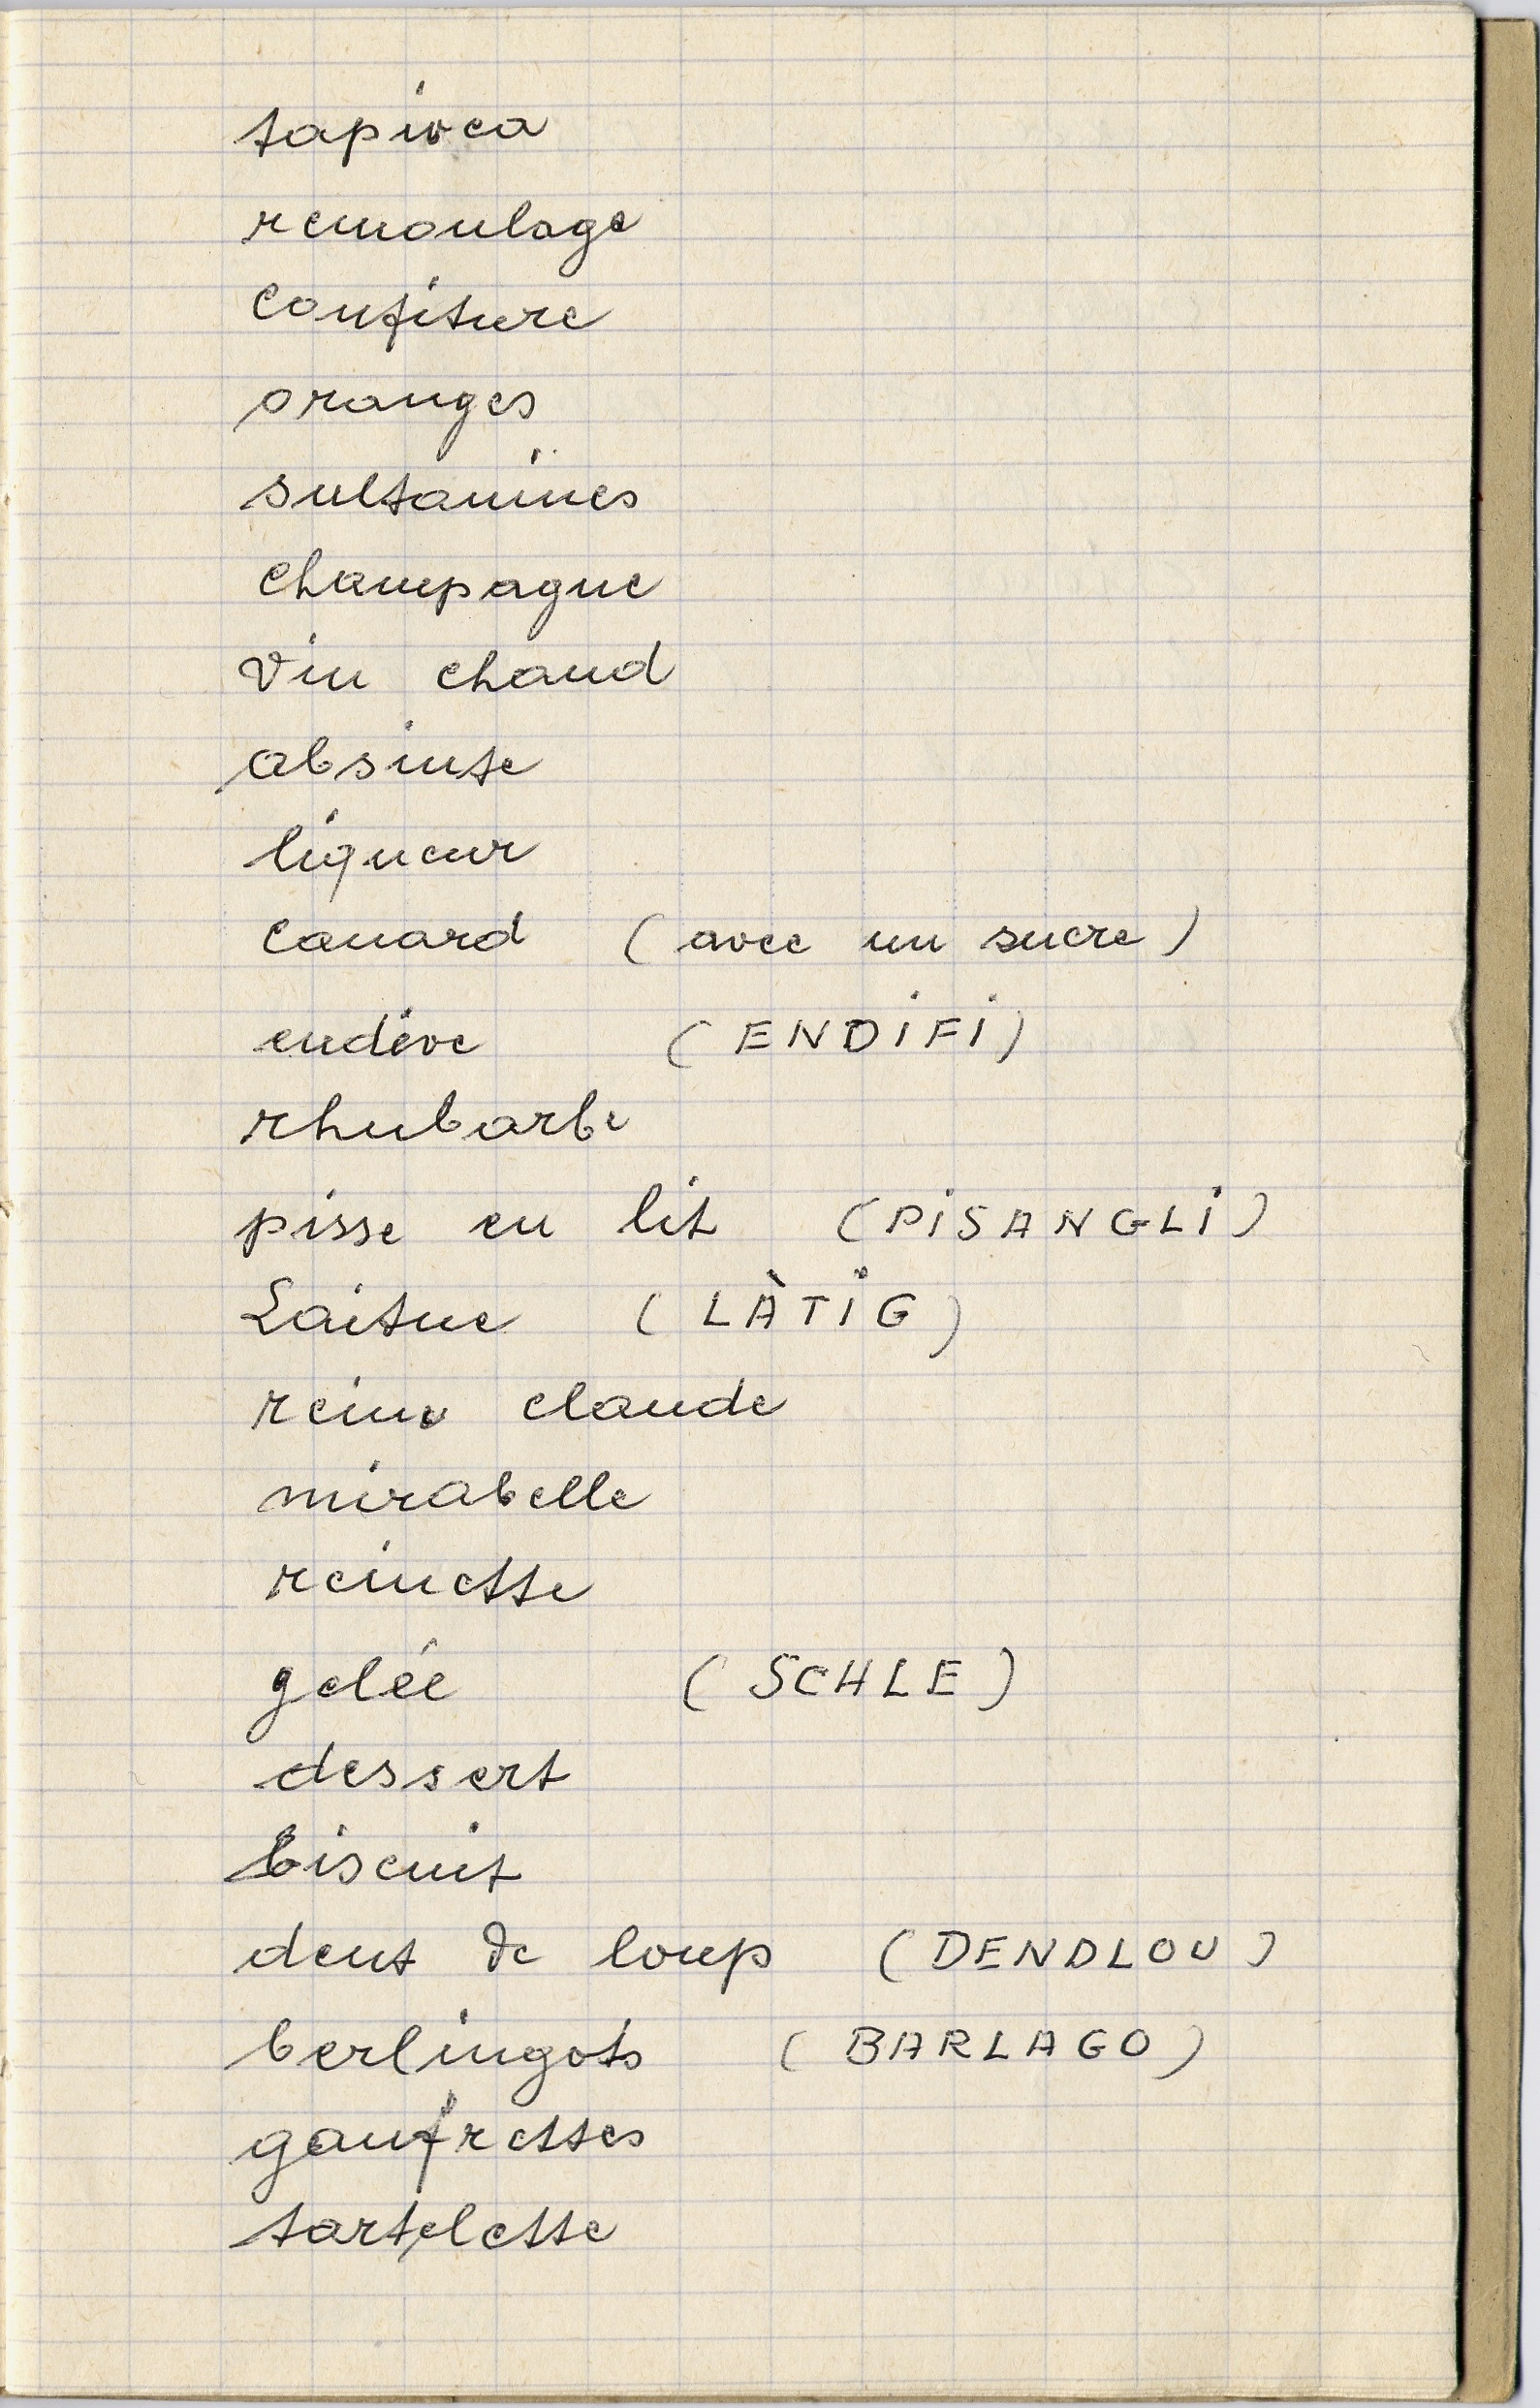 tapioca
remoulage
confiture
oranges
sultanines
champagne
vin chaud
absinte
liqueur
canard (avec un sucre)
endive (ENDIFI)
rhubarbe
pisse en lit (PISANGLI)
Laitue (LÀTIG)
reine claude
mirabelle
reinette
gelée (SCHLE)
dessert
biscuit
dent de loup (DENDLOU)
berlingots (BARLAGO)
gaufrettes
tartelette